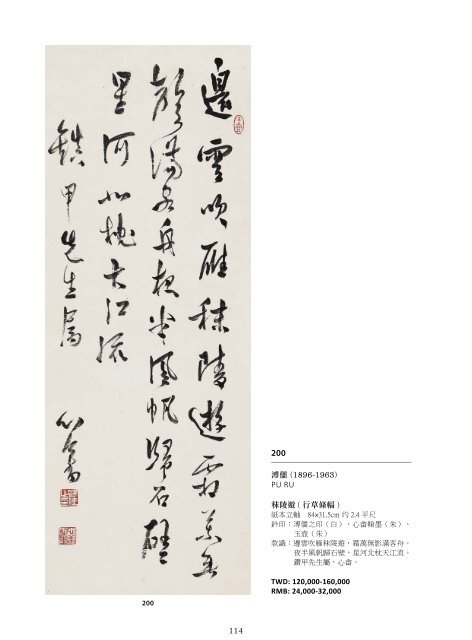 邊雲吹雁秣陵遊霜葉無
滿客舟夜半風帆歸石壁
星河北枕大江流
鐵甲先生屬 心畬
200
200
溥儒 (1896-1963)
PU RU
秣陵遊（行草條幅）
紙本立軸 84x31.5cm 約 2.4 平尺
鈐印：溥儒之印（白）、心畬翰墨（朱）、
玉壺（朱）
款識：邊雲吹雁秣陵遊，霜萬無影滿客舟。
夜半風帆歸石壁，星河北枕天江流。
鑽甲先生屬，心畬。
TWD: 120,000-160,000
RMB: 24,000-32,000
114